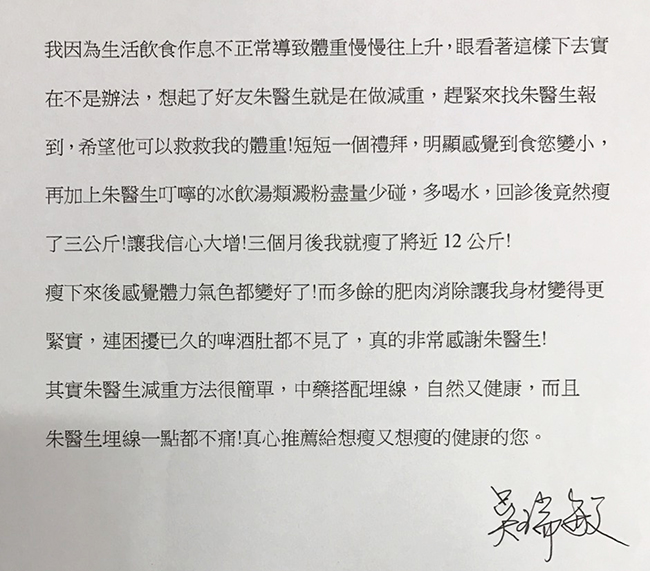 我因為生活飲食作息不正常導致體重慢慢往上升，眼看著這樣下去實
在不是辦法，想起了好友朱醫生就是在做減重，趕緊來找朱醫生報
到，希望他可以救救我的體重!短短一個禮拜，明顯感覺到食慾變小，
再加上朱醫生叮嚀的冰飲湯類澱粉盡量少碰，多喝水，回診後竟然瘦
了三公斤!讓我信心大增!三個月後我就瘦了將近 12 公斤!
瘦下來後感覺體力氣色都變好了!而多餘的肥肉消除讓我身材變得更
緊實，連困擾已久的啤酒肚都不見了，真的非常感謝朱醫生!
其實朱醫生減重方法很簡單，中藥搭配埋線，自然又健康，而且
朱醫生埋線一點都不痛!真心推薦給想瘦又想瘦的健康的您。
吳瑞敏